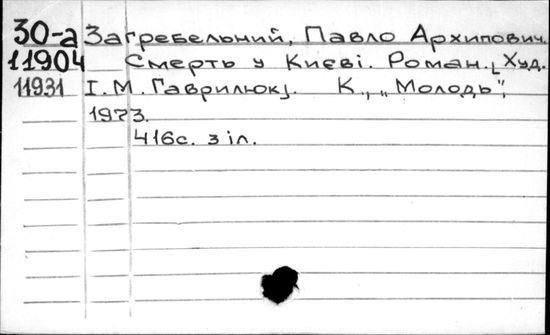 30-а Загребельний, Павло Архипович.
11904 Смерть у Києві. Роман. [Худ.
11931 І.М. Гаврилюк]. К., „Молодь",
1973.
416с. з іл.